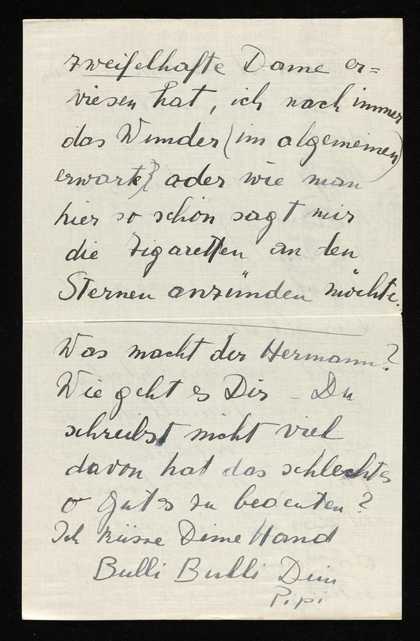 zweifelhafte Dame er=
wiesen hat, ich noch immer
das Wunder (im algemeinen)
erwarte) oder wie man
hier so schön sagt mir
die Zigaretten an den
Sternen anzünden möchte.
Was macht der Hermann?
Wie geht es Dir – Du
schreibst nicht viel
davon hat das schlechtes
o gutes zu bedeuten?
Ich küsse Deine Hand
Bulli Bulli Dein
Pipi